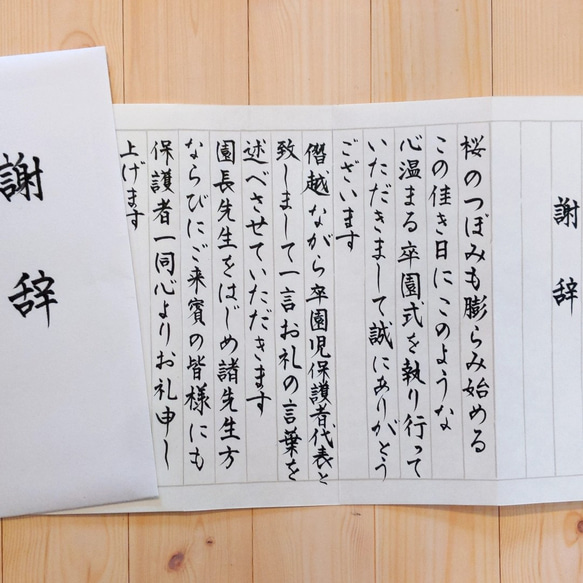 謝辞
桜のつぼみも膨らみ始める
この佳き日にこのような
心温まる卒園式を執り行って
いただきまして誠にありがとう
ございます
僭越ながら卒園児保護者代表と
致しまして一言お礼の言葉を
述べさせていただきます
園長先生をはじめ諸先生方
ならびにご来賓の皆様にも
保護者一同心よりお礼申し
上げます
謝辞